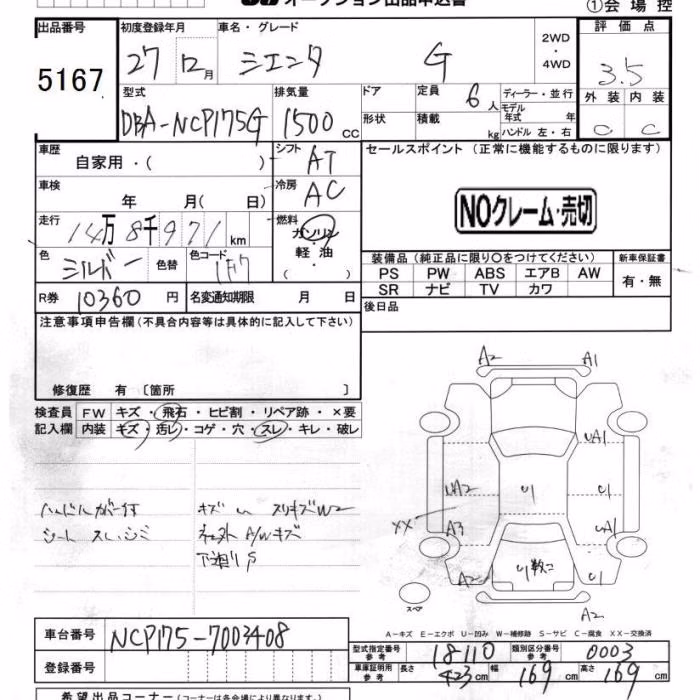 オークション出品申込書
①会場控
出品番号 5167
初度登録年月 27 12月
車名・グレード シエンタ G
2WD・4WD
評価点 3.5
外装 C 内装 C
型式 DBA-NCP175G
排気量 1500cc
ドア
形状
定員 6人
積載 kg
ディーラー・並行
モデル年式 年
ハンドル 左・右
車歴 自家用・( )
シフト AT
車検 年 月(日)
冷房 AC
走行 14万8千971km
燃料 ガソリン・軽油・( )
色 シルバー 色替 色コード 1F7
R券 10360円
名変通知期限 月 日
セールスポイント(正常に機能するものに限ります)
NOクレーム・売切
装備品(純正品に限り○をつけてください)
新車保証書
PS PW ABS エアB AW
有・無
SR ナビ TV カワ
後日品
注意事項申告欄(不具合内容等は具体的に記入して下さい)
修復歴 有〔箇所 〕
検査員記入欄
FW キズ・飛石・ヒビ割・リペア跡・×要
内装 キズ・汚レ・コゲ・穴・スレ・キレ・破レ
ハンドルカバー付
シートスレ、シミ
キズ U スリキズW2
A/Wキズ
下廻りS
A2 A1
UA1
UA2 U1 U1
XX A3 UA1
A2 U1 数コ U1
A2
スペア
A-キズ E-エクボ U-凹み W-補修跡 S-サビ C-腐食 XX-交換済
車台番号 NCP175-7003408
登録番号
型式指定番号 参考 18110
類別区分番号 参考 0003
車庫証明用 参考 長さ 423cm 幅 169cm 高さ 169cm
希望出品コーナー(コーナーは各会場により異なります)